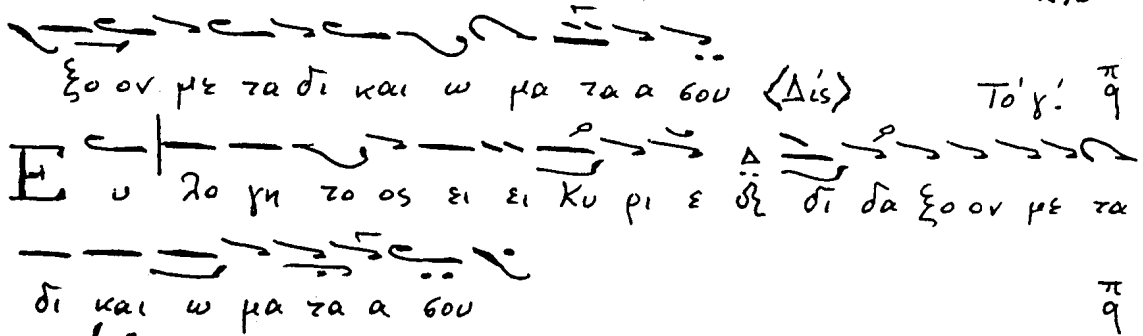 ξο ον με τα δι και ω μα τα α σου 〈Δίς〉 Τό γ΄. π q
Ε υ λο γη το ος ει ει Κυ ρι ε Δ δι δα ξο ον με τα
δι και ω μα τα α σου π q